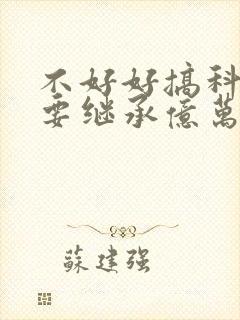 不好好搞科
要继承億萬
蘇建强